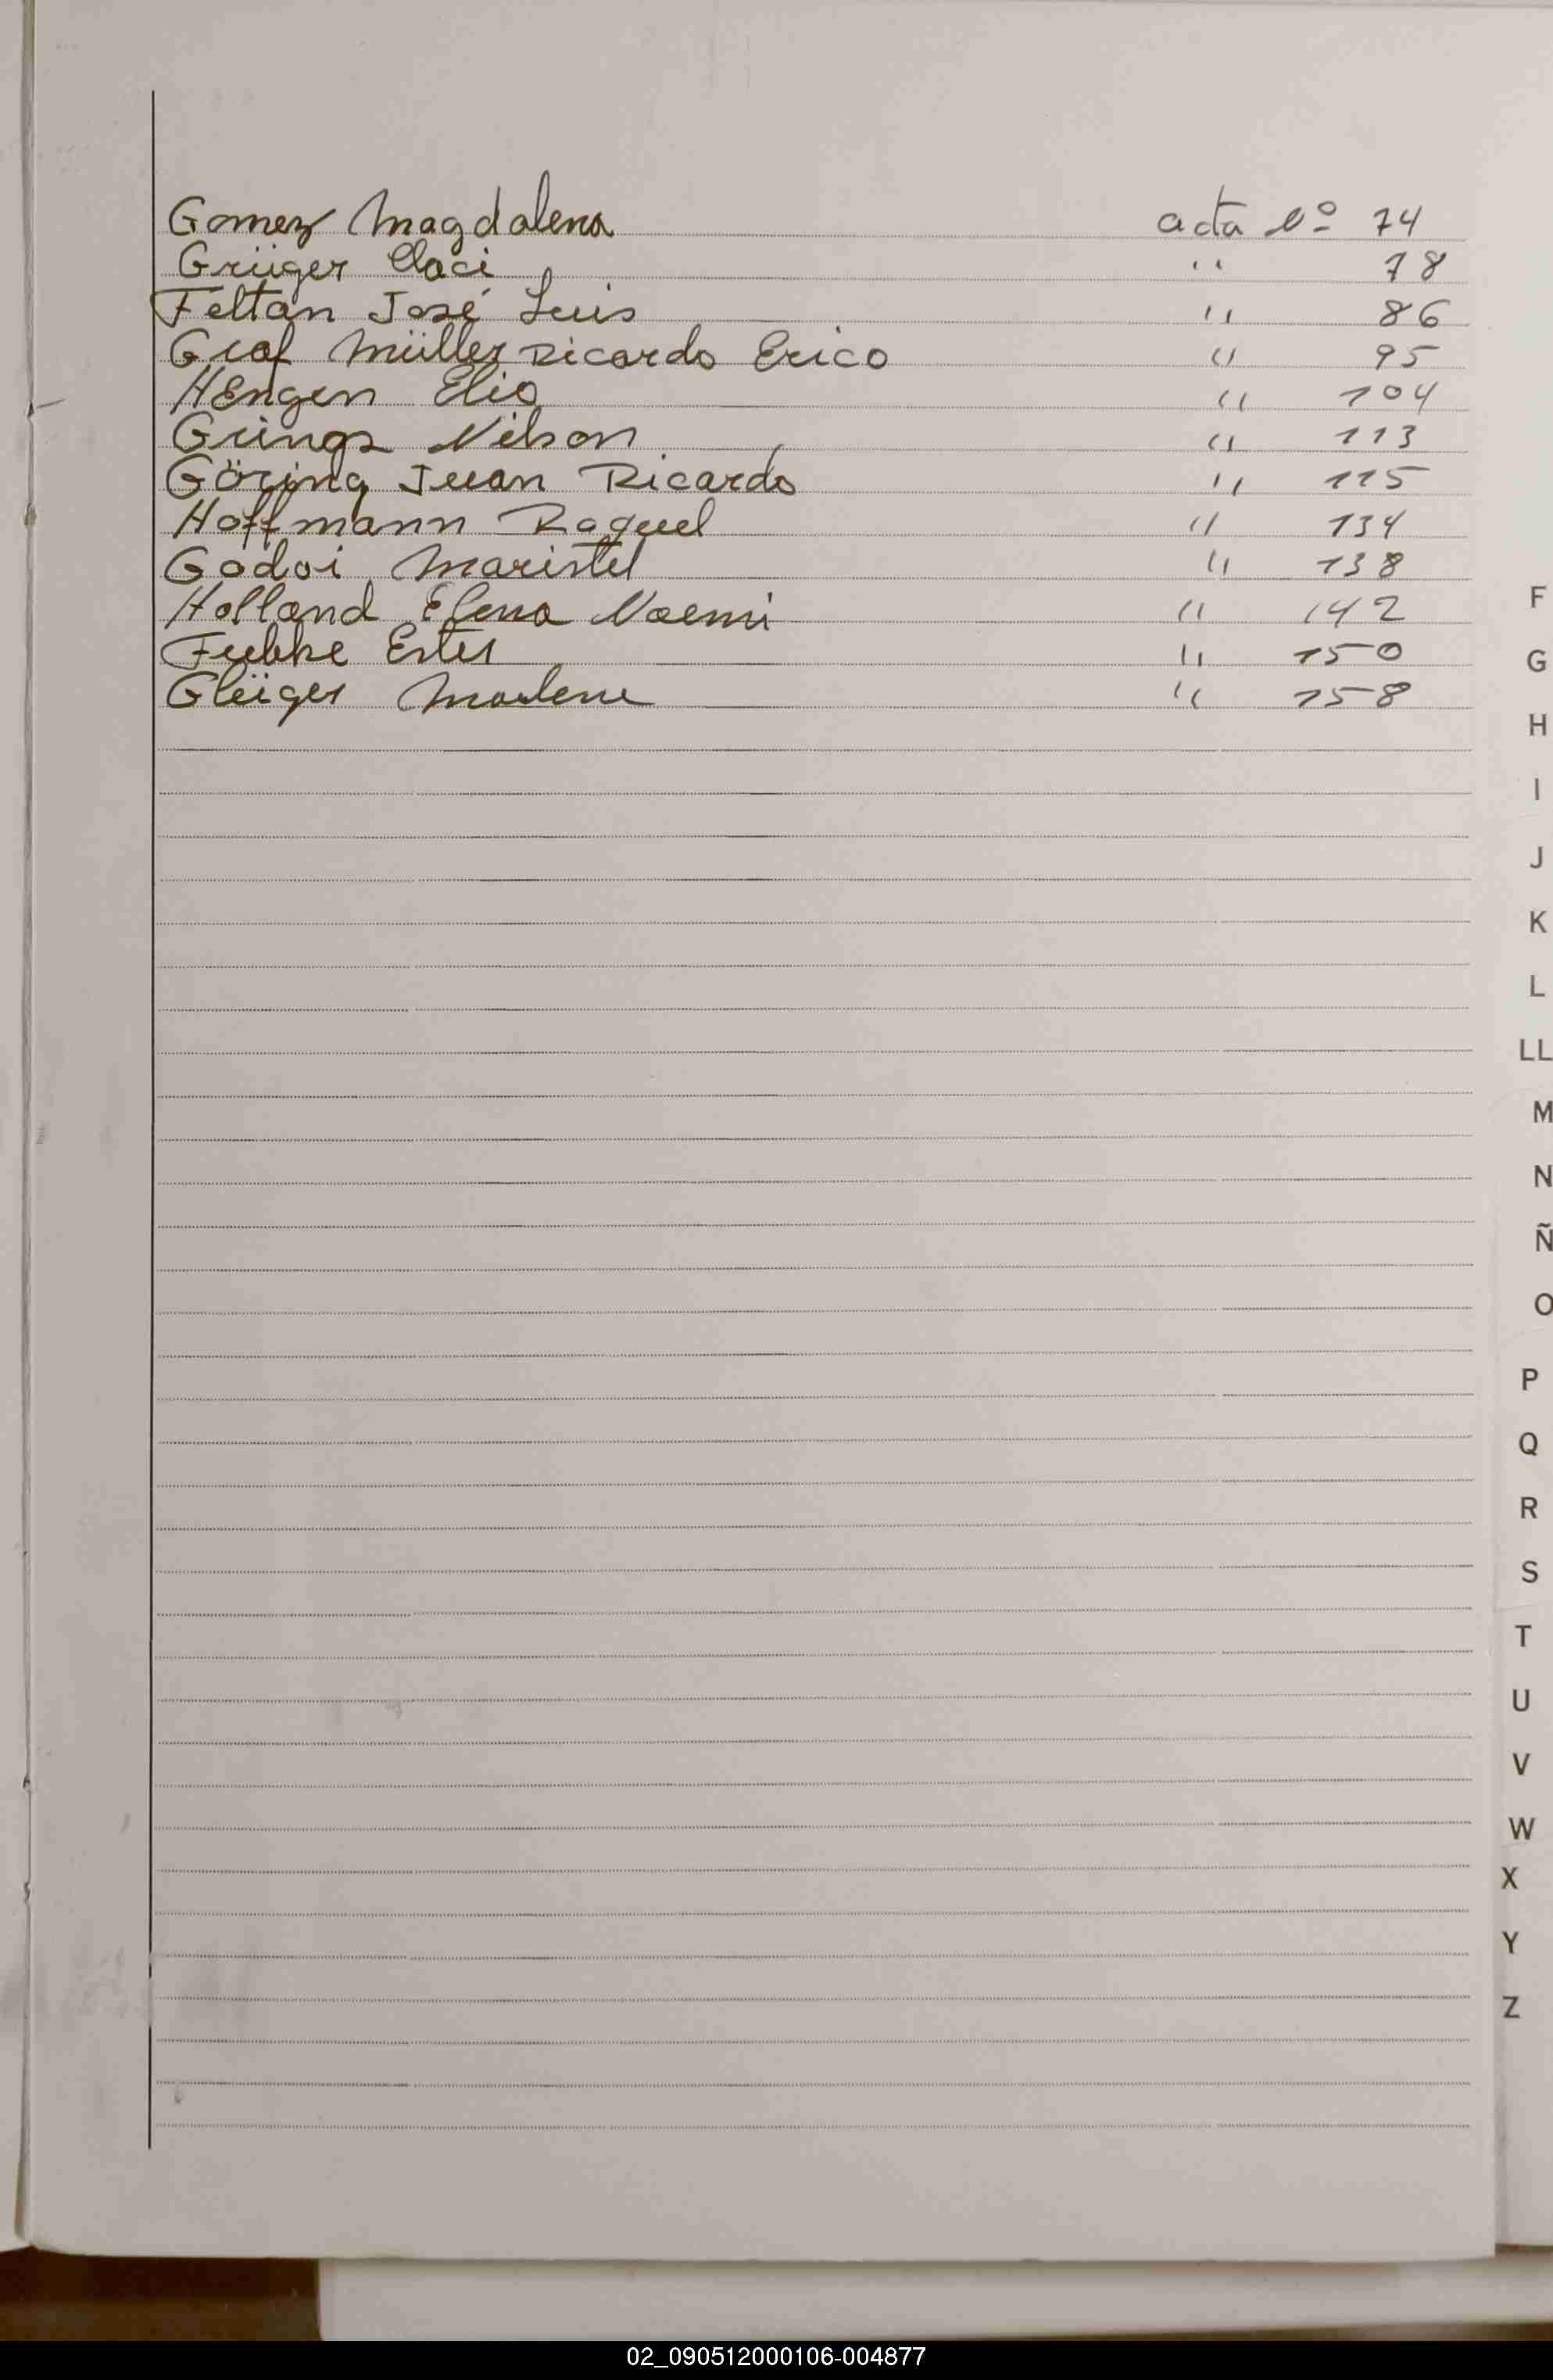 Gomez Magdalena acta Nº 74
Grüger Claci " 78
Feltan José Luis " 86
Graf Müller Ricardo Erico " 95
HEngen Elio " 104
Grings Nelson " 113
Göring Juan Ricardo " 115
Hoffmann Raquel " 134
Godoi Maristel " 138
Holland Elena Noemi " 142
Fubke Ester " 150
Glüger Marlene " 158
F
G
H
I
J
K
L
LL
M
N
Ñ
O
P
Q
R
S
T
U
V
W
X
Y
Z
02_090512000106-004877